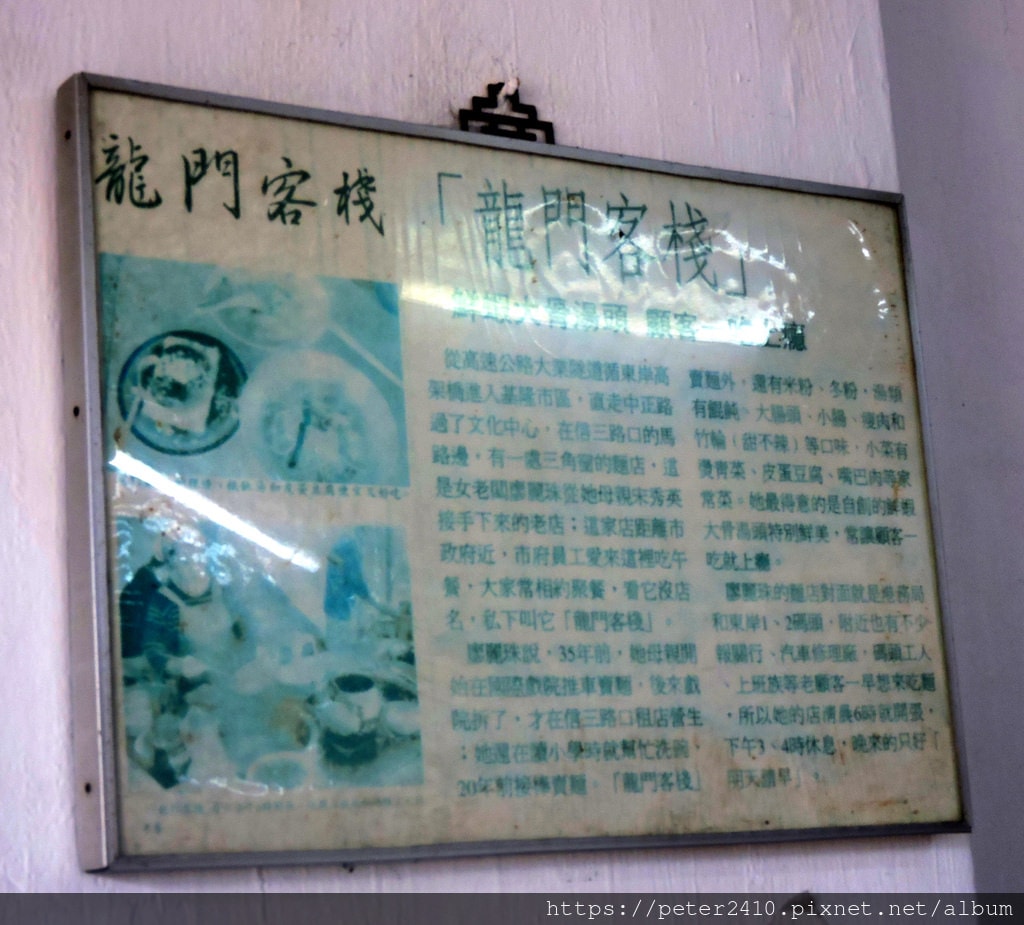 龍門客棧
「龍門客棧」
鮮蝦大骨湯頭 顧客一吃上癮
從高速公路大業隧道循東岸高
架橋進入基隆市區，直走中正路
過了文化中心，在信三路口的馬
路邊，有一處三角窗的麵店，這
是女老闆廖麗珠從她母親宋秀英
接手下來的老店；這家店距離市
政府近，市府員工愛來這裡吃午
餐，大家常相約聚餐，看它沒店
名，私下叫它「龍門客棧」。
廖麗珠說，35年前，她母親開
始在國際戲院推車賣麵，後來戲
院拆了，才在信三路口租店營生
；她還在讀小學時就幫忙洗碗，
20年前接棒賣麵。「龍門客棧」
賣麵外，還有米粉、冬粉，湯類
有餛飩、大腸頭、小腸、瘦肉和
竹輪（甜不辣）等口味，小菜有
燙青菜、皮蛋豆腐、嘴巴肉等家
常菜。她最得意的是自創的鮮蝦
大骨湯頭特別鮮美，常讓顧客一
吃就上癮。
廖麗珠的麵店對面就是港務局
和東岸1、2碼頭，附近也有不少
報關行、汽車修理廠，碼頭工人
、上班族等老顧客一早想來吃麵
，所以她的店清晨6時就開張，
下午3、4時休息，晚來的只好「
明天請早」。
https://peter2410.pixnet.net/album